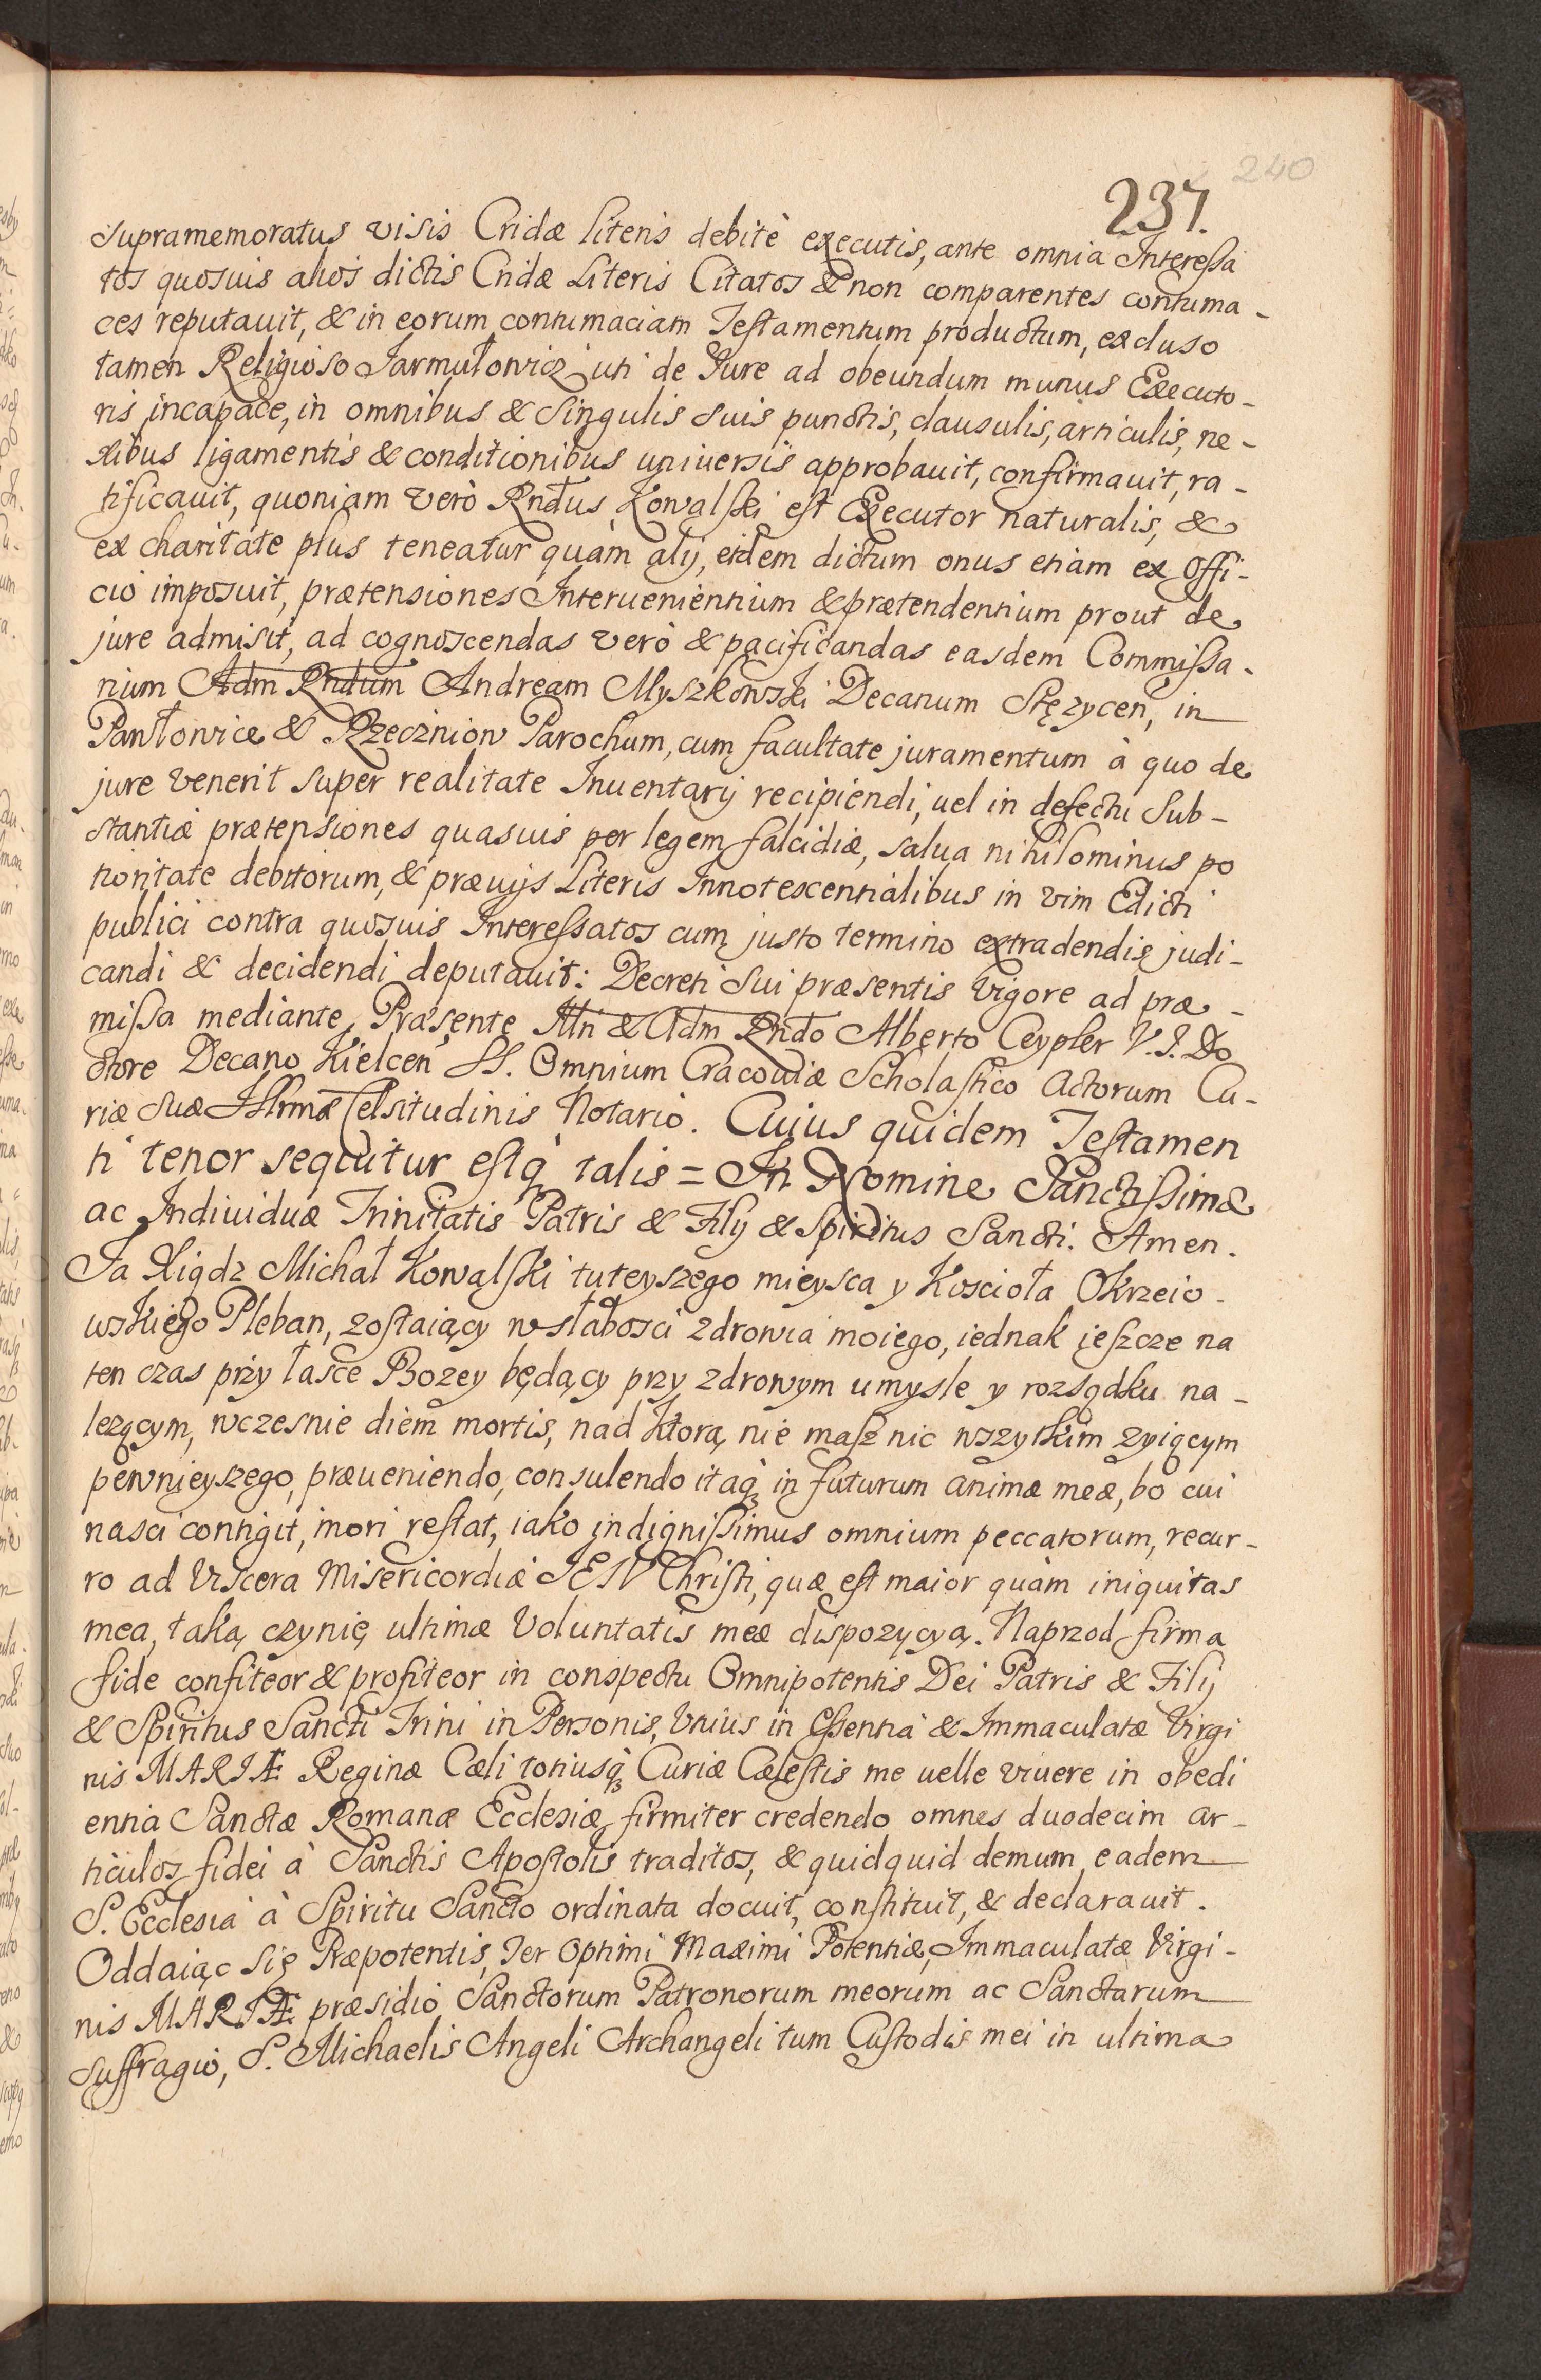 240
237.
supramemoratus visis Cridæ literis debitè executis, ante omnia Interessa
tos quosuis alios dictis Cridæ Literis Citatos & non comparentes contuma-
ces reputauit, & in eorum contumaciam Testamentum productum, excluso
tamen Religioso Jarmułowicz uti de Jure ad obeundum munus Executo-
ris incapace, in omnibus & singulis suis punctis, clausulis, articulis, ne-
xibus ligamentis & conditionibus uniuersis approbauit, confirmauit, ra-
tificauit, quoniam verò Rndus Kowalski est Executor naturalis, &
ex charitate plus teneatur quàm alij, eidem dictum onus etiam ex Offi-
cio imposuit, prætensiones Interuenientium & prætendentium prout de
jure admisit, ad cognoscendas verò & pacificandas easdem Commissa-
rium Adm Rndum Andream Myszkowski Decanum Stęzycen, in
Pawłowice & Rzeczniow Parochum, cum facultate juramentum à quo de
jure venerit super realitate Inuentarij recipiendi, uel in defectu Sub-
stantiæ prætensiones quasuis per legem falcidiæ, salua nihilominus po
tioritate debitorum, & præuijs Literis Innotescentialibus in vim Edicti
publici contra quosuis Interessatos cum justo termino extradendis judi-
candi & decidendi deputauit: Decreti sui præsentis Vigore ad præ-
missa mediante, Præsente Illri & Adm Rndo Alberto Ceypler V. J. Do
ctore Decano Kielcen SS. Omnium Cracouiæ Scholastico Actorum Cu-
riæ suæ Illrmæ Celsitudinis Notario. Cujus quidem Testamen
ti tenor sequitur estq talis = In Nomine Sanctissimæ
ac Indiuiduæ Trinitatis Patris & Filij & Spiritus Sancti. Amen.
Ja Xiądz Michał Kowalski tuteyszego mieysca y Koscioła Okrzeio-
wskiego Pleban, zostaiący w słabosci zdrowia moiego, iednak ieszcze na
ten czas przy łasce Bozey będący przy zdrowym umysle y rozsądku na-
lezącym, wczesnie diem mortis, nad ktorą nie masz nic wszytkim zyiącym
pewnieyszego, præueniendo, consulendo itaq in futurum animæ meæ, bo cui
nasci contigit, mori restat, iako indignissimus omnium peccatorum, recur-
ro ad Viscera Misericordiæ JESU Christi, quæ est maior quàm iniquitas
mea, taką czynię ultimæ Voluntatis meæ dispozycyą. Naprzod firma
fide confiteor & profiteor in conspectu Omnipotentis Dei Patris & Filij
& Spiritus Sancti Trini in Personis, Vnius in Essentia & Immaculatæ Virgi
nis MARIÆ Reginæ Cæli totiusq Curiæ Cælestis me uelle viuere in obedi
entia Sanctæ Romanæ Ecclesiæ, firmiter credendo omnes duodecim ar-
ticulos fidei à Sanctis Apostolis traditos, & quidquid demum eadem
S. Ecclesia à Spiritu Sancto ordinata docuit, constituit, & declarauit.
Oddaiąc się Præpotentis, Ter Optimi Maximi Potentiæ, Immaculatæ Virgi-
nis MARIÆ præsidio, Sanctorum Patronorum meorum ac Sanctarum
suffragio, S. Michaelis Angeli Archangeli tum Custodis mei in ultima